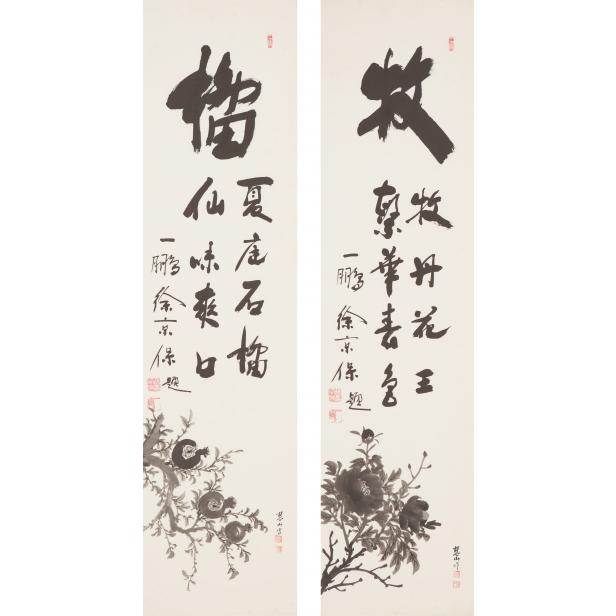 牧
牧丹花王
繁華春色
一鵬徐京保題
慧山作
榴
夏庭石榴
仙味爽口
一鵬徐京保題
慧山作